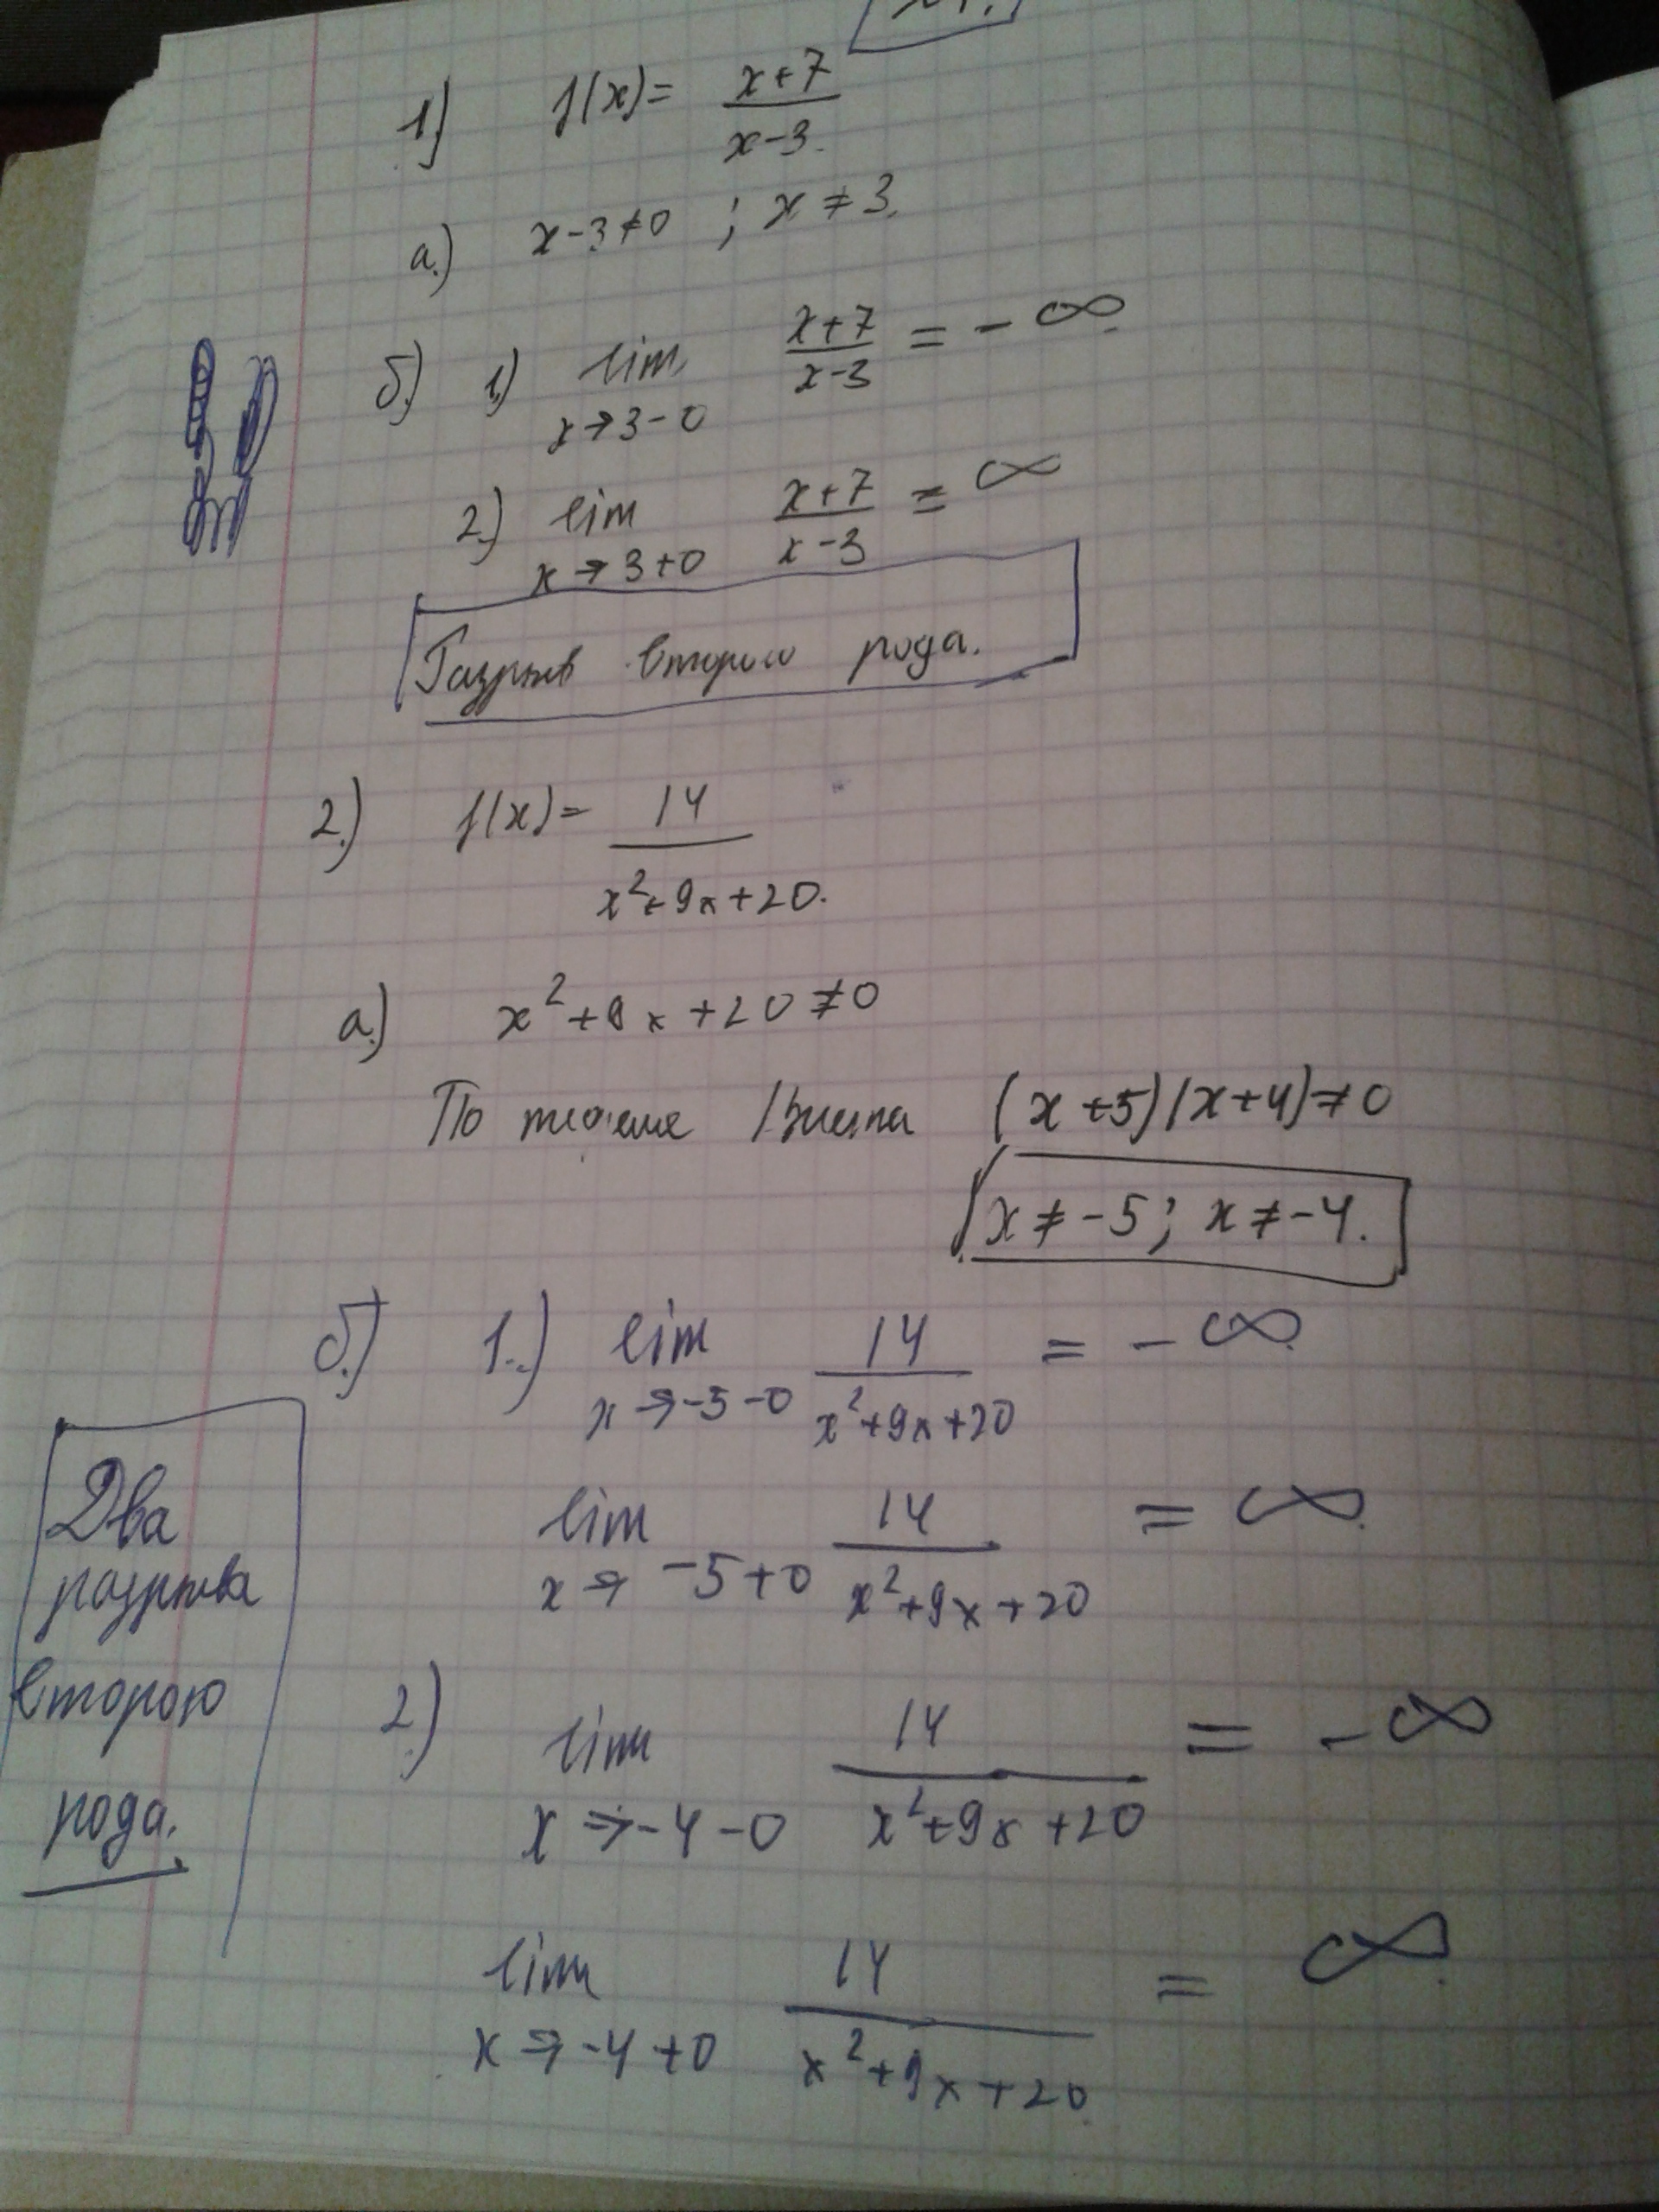 1.) f(x) = (x+7)/(x-3).
а.) x-3≠0 ; x≠3.
б.) 1.) lim x→3-0 (x+7)/(x-3) = -∞.
2.) lim x→3+0 (x+7)/(x-3) = ∞
Разрыв второго рода.
2.) f(x) = 14/(x²+9x+20).
а.) x²+9x+20≠0
По теореме Виета (x+5)(x+4)≠0
x≠-5; x≠-4.
б.) 1.) lim x→-5-0 14/(x²+9x+20) = -∞.
lim x→-5+0 14/(x²+9x+20) = ∞.
2.) lim x→-4-0 14/(x²+9x+20) = -∞
lim x→-4+0 14/(x²+9x+20) = ∞.
Два
разрыва
второго
рода.